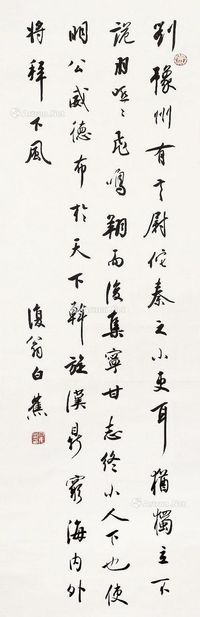 劉豫州有言尉佗秦之小吏耳猶獨立不
詭羽啞々飛鳴翔而後集寧甘志終小人下也使
明公威德布於天下斡旋漢鼎窮海內外
將拜下風
復翁白蕉